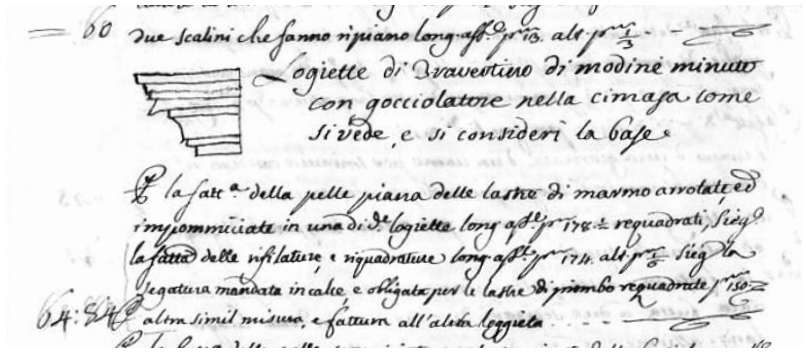 60 due scalini che fanno ripiano long. ass.e p.mi 13. alt. p.mi 1/3
Logiette di Travertino di modine minuto
con gocciolatore nella cimasa come
si vede, e si consideri la base
la fatt.a della pelle piana delle lastre di marmo arrotate, ed
impomiciate in una di d.e logiette long. ass.e p.mi 178 requadrati, Sieg.e
la fatt.a delle rifilature, e riquadrature long. ass.e p.mi 174. alt. p.mi Sieg.e la
segatura mandata in calce, e obligata per le lastre di piombo requadrate p.mi 150
64:84 altra simil misura, e fattura all'altra loggieta